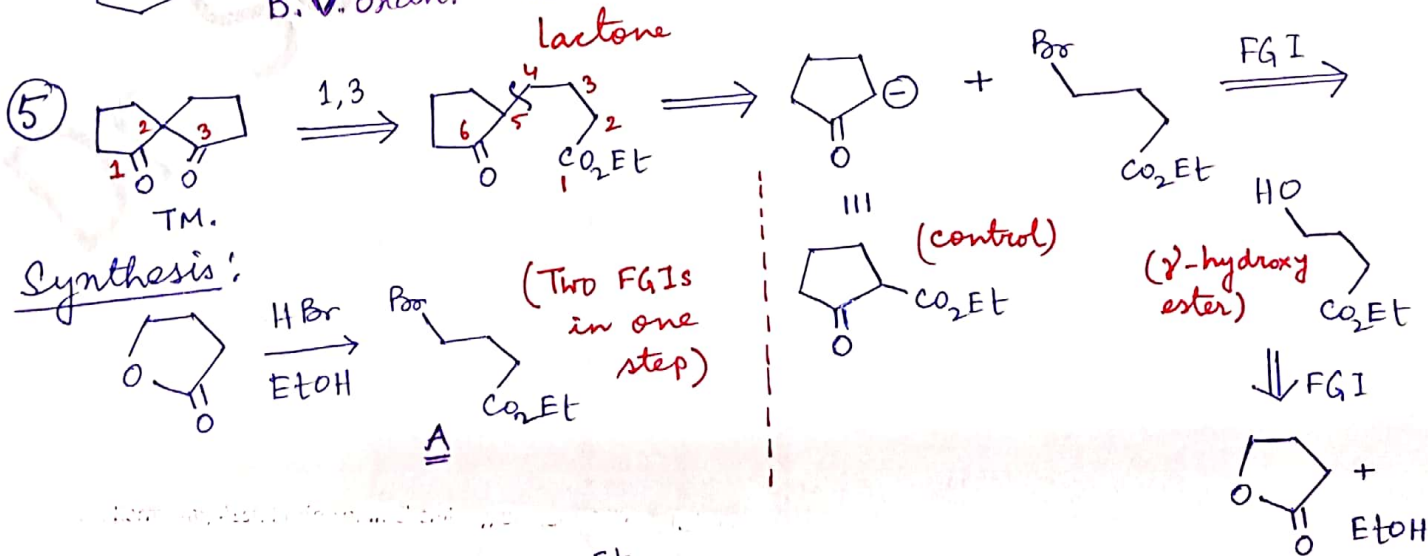 B. V. Oxidn.
lactone
⑤ 1 2 3 O O 1,3 6 5 4 3 2 1 O CO₂Et ⊖ O + Br CO₂Et FGI
TM.
III
(control)
CO₂Et
O
HO
(γ-hydroxy ester)
CO₂Et
FGI
O O + EtOH
Synthesis:
O O HBr EtOH Br CO₂Et
A
(Two FGIs
in one
step)